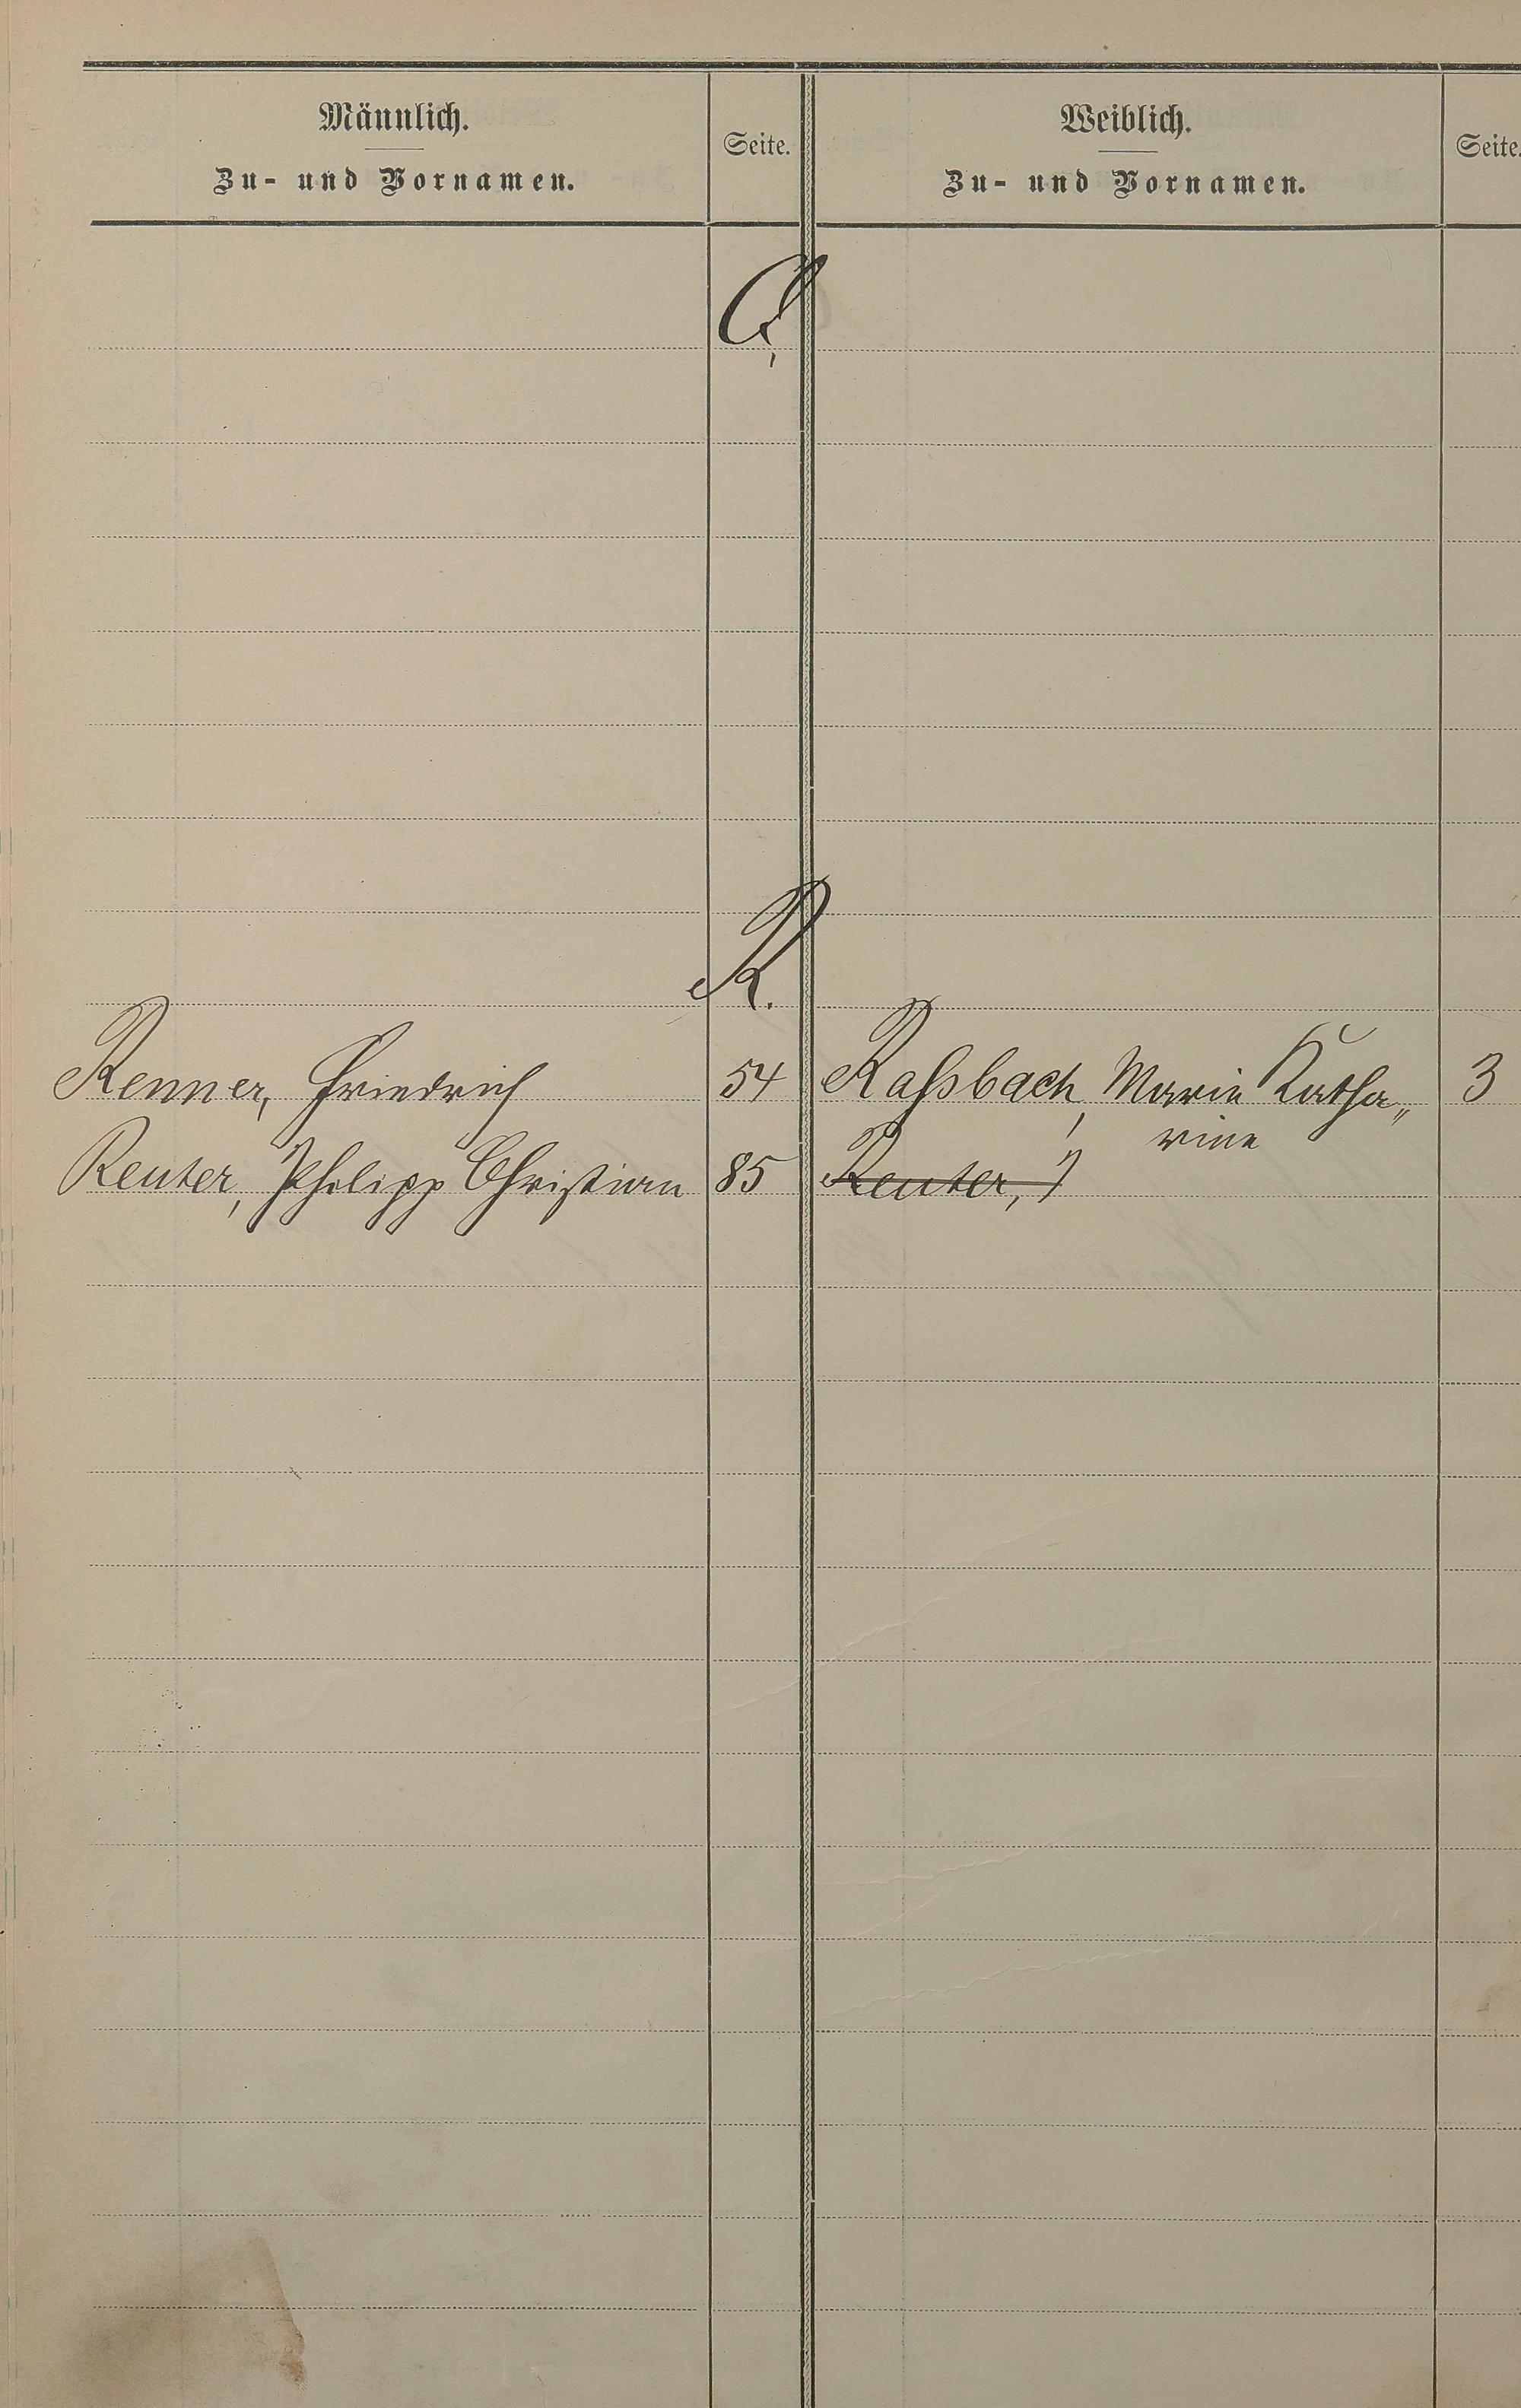 Männlich.
Zu- und Vornamen.
Seite.
Weiblich.
Zu- und Vornamen.
Seite.
Q,
R.
Renner, Friedrich 54 Raßbach, Marie Katha„ 3
rine
Reuter, Philipp Christian 85 Reuter,